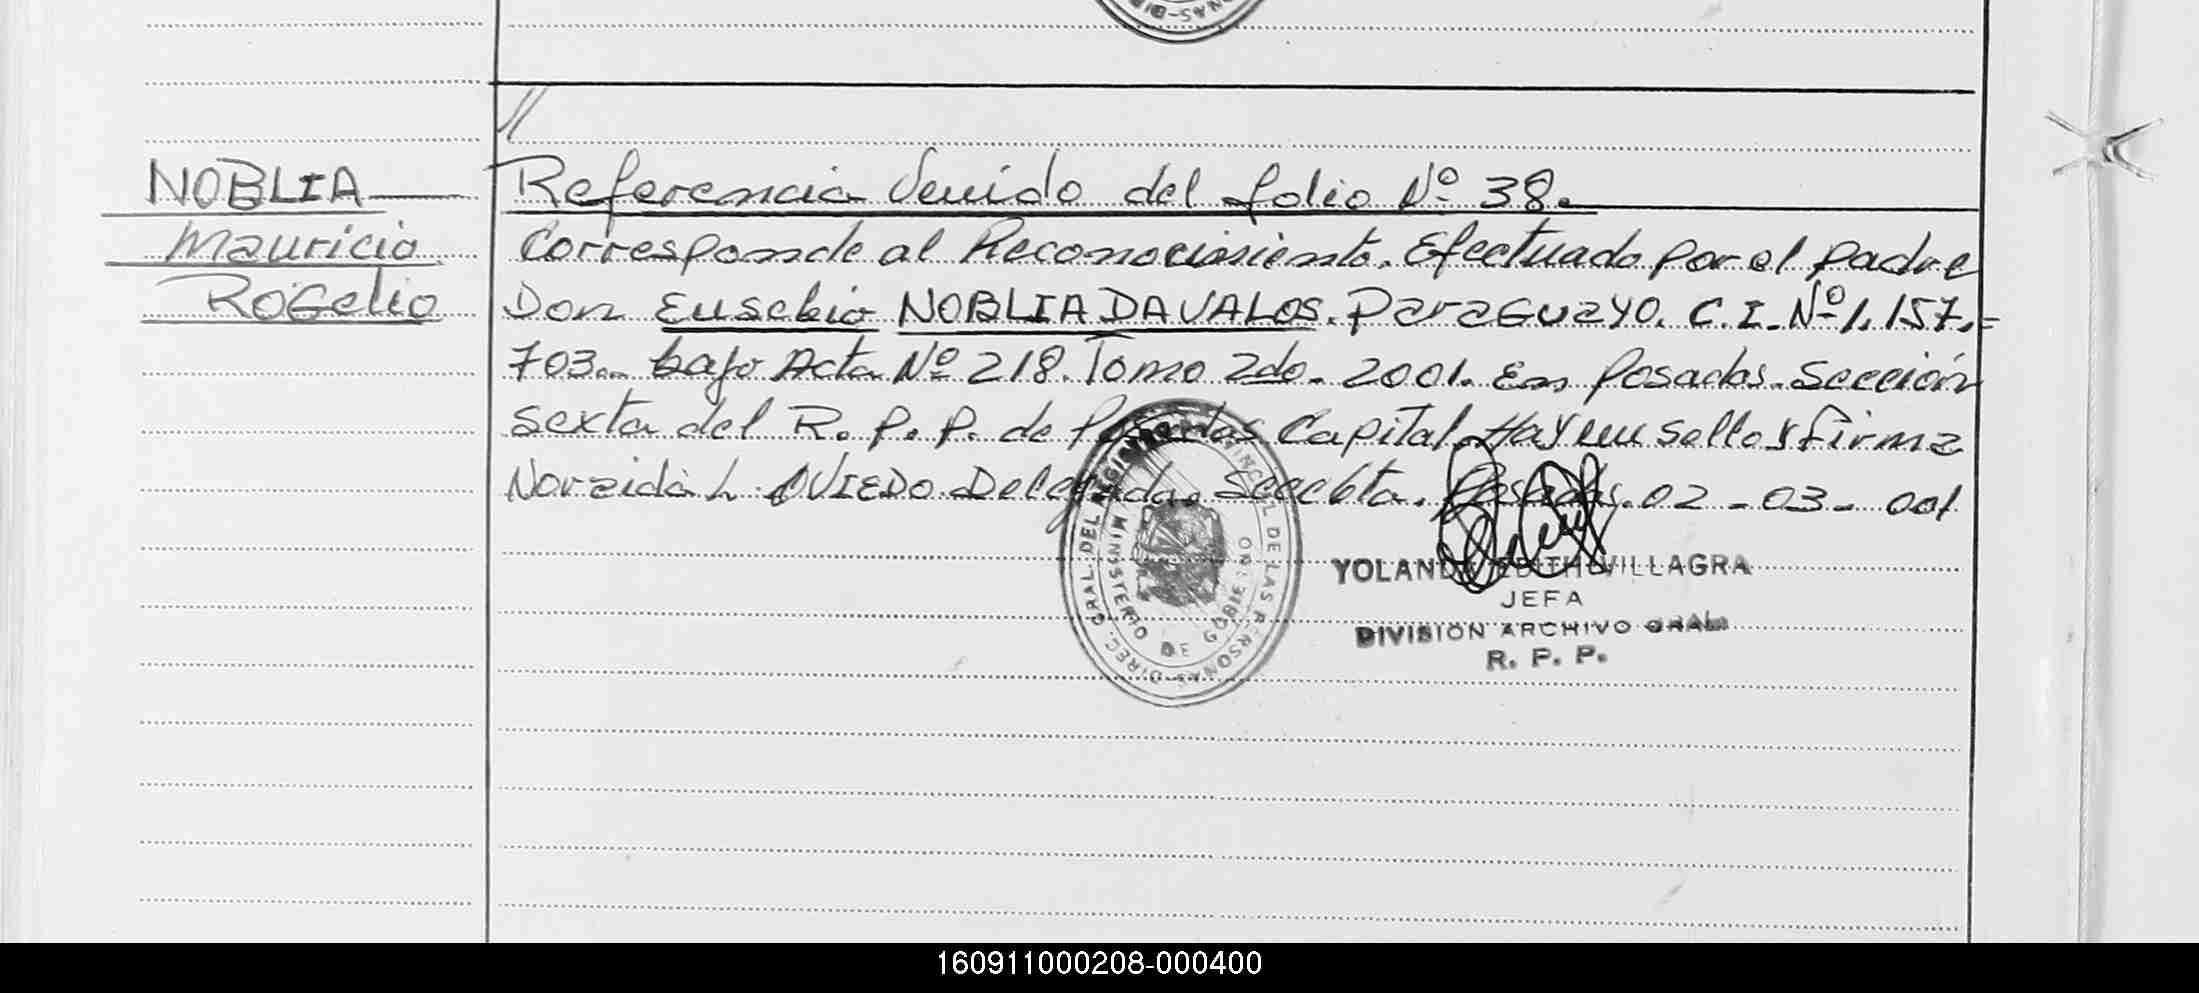 NOBLIA
Mauricio
Rogelio
Referencia Venido del folio Nº 38.
Corresponde al Reconocimiento. Efectuado por el padre
Don Eusebio NOBLIA DAVALOS. Paraguayo. C.I. Nº 1.157.-
703.- bajo Acta Nº 218. Tomo 2do. 2001. En Posadas. Sección
sexta del R.P.P. de Posadas Capital. Hay un sello y firma
L. OVIEDO Delegada. Posadas. 02-03-001
DIREC. GRAL. DEL REGISTRO PROVINCIAL DE LAS PERSONAS
MINISTERIO DE GOBIERNO
YOLANDA EDITH VILLAGRA
JEFA
DIVISION ARCHIVO GRAL.
R. P. P.
160911000208-000400